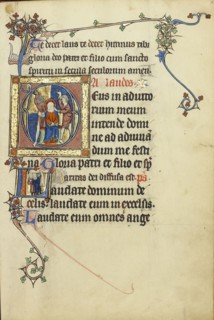 Te decet laus te decet himnus tibi
gloria deo patri et filio cum sancto
spiritu in secula seculorum amen.
A laudes
Deus in adiuto
rium meum
intende domi
ne ad adiuuan
dum me festi
na Gloria patri et filio et sp̄
Laudate dominum de
celis. laudate eum in excelsis.
Laudate eum omnes ange